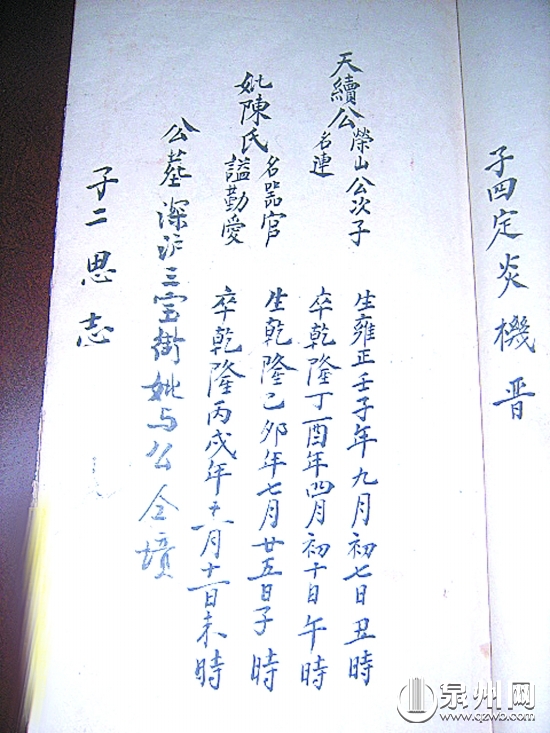 子四定炎機晋
天續公
榮山公次子
名連
生雍正壬子年九月初七日丑時
卒乾隆丁酉年四月初十日午時
妣陳氏
名器官
諡勤愛
生乾隆乙夘年七月廿五日子時
卒乾隆丙戌年月十一日未時
公墓深沪三宝街妣与公仝墳
子二思志
泉州网
www.qzwb.com